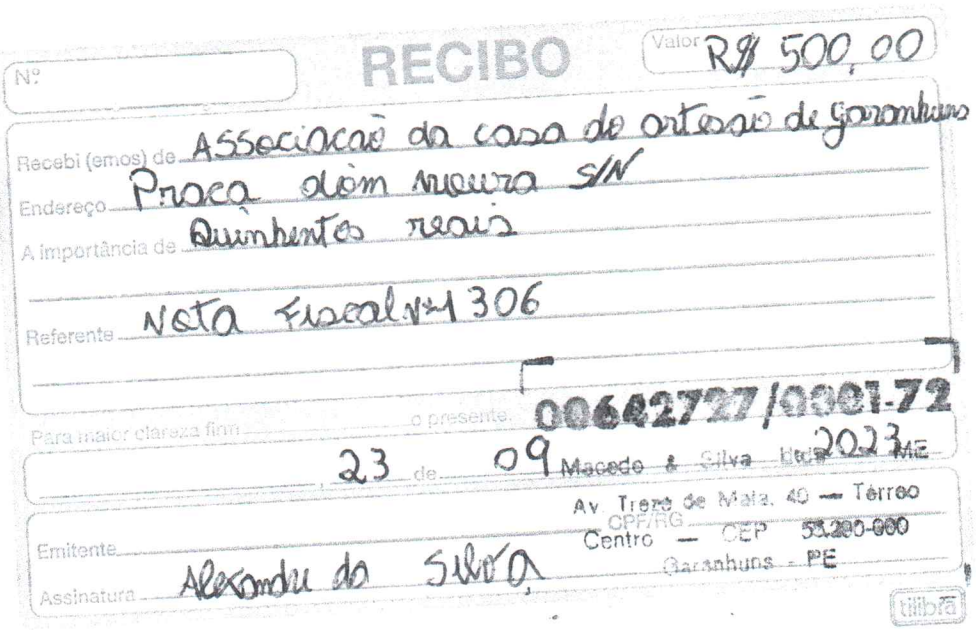 Nº
RECIBO
Valor R$ 500,00
Recebi (emos) de Associacaõ da casa do artesaõ de garanhuns
Endereço Praca dom moura S/N
A importância de Quinhentos reais
Referente Nota Fiscal Nº 1306
Para maior clareza firm o presente.
00642727/0001-72
, 23 de 09 2023
Macedo & Silva Ltda ME
Av. Treze de Maio, 40 — Térreo
CPF/RG
Centro — CEP 55.290-000
Emitente
Garanhuns - PE
Assinatura Alexandre da Silva
tilibra